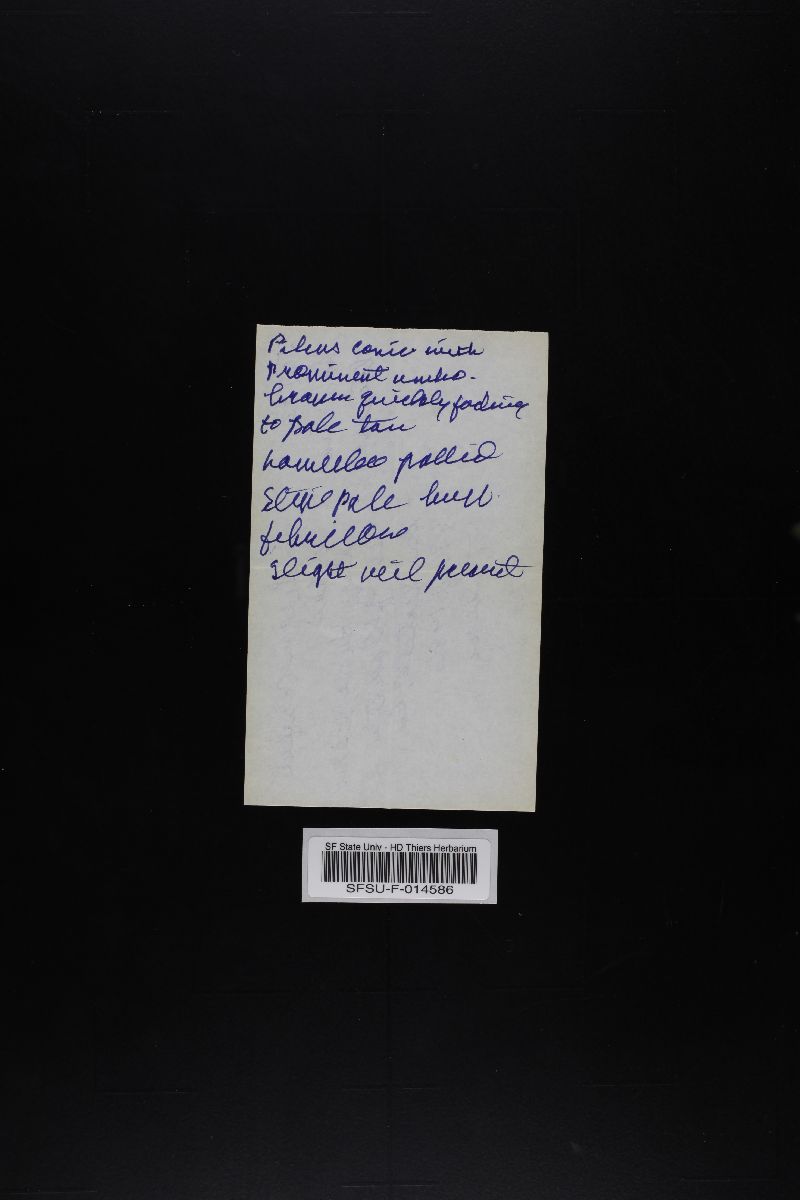 Pileus conic with
prominent umbo.
brown quickly fading
to pale tan
Lamellae pallid
Stipe pale buff.
fibrillose
slight veil present
SF State Univ - HD Thiers Herbarium
SFSU-F-014586